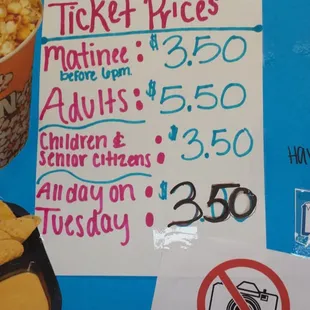 Ticket Prices
Matinee: $3.50
before 6pm.
Adults: $5.50
Children &
Senior Citizens: $3.50
All day on
Tuesday: $3.50